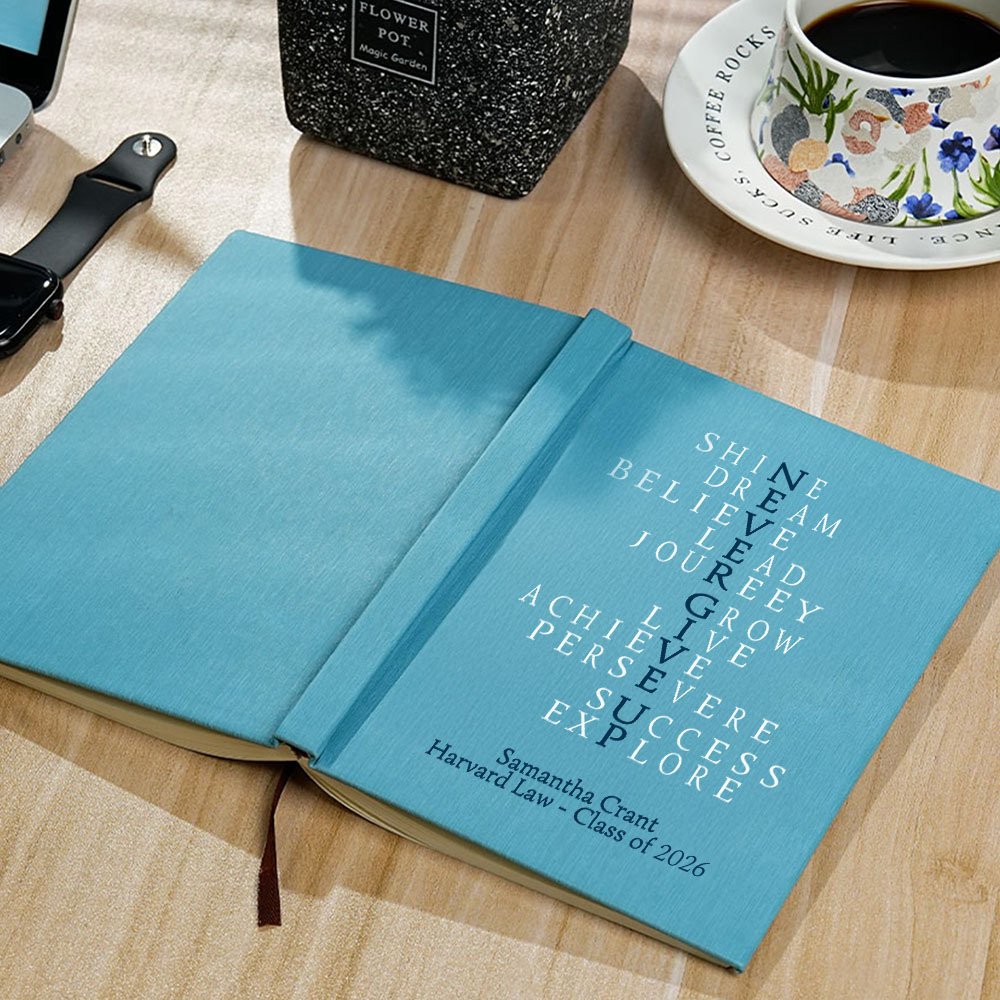 FLOWER
POT.
Magic Garden
NCE. LIFE SUCKS, COFFEE ROCKS
SHINE
DREAM
BELIEVE
LEAD
JOUREEY
GROW
LIVE
ACHIEVE
PERSEVERE
SUCCESS
EXPLORE
Samantha Crant
Harvard Law - Class of 2026